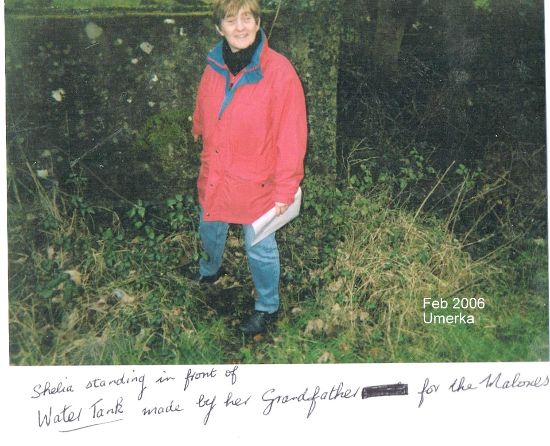 Feb 2006
Umerka
Shelia standing in front of
Water Tank made by her Grandfather for the Malones